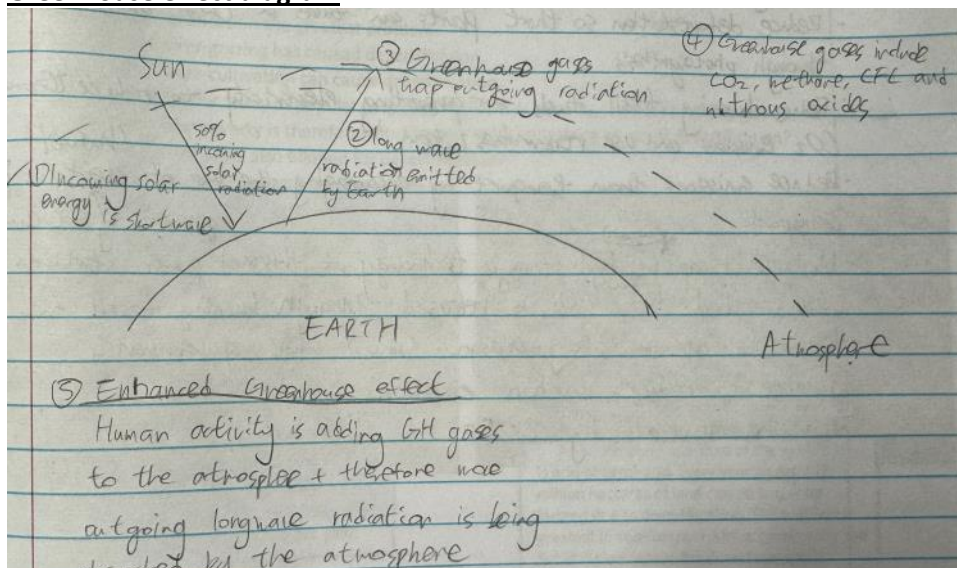 Sun
③ Greenhouse gases
trap outgoing radiation
④ Greenhouse gases include
CO2, methane, CFC and
nitrous oxides
50%
incoming
solar
radiation
② long wave
radiation emitted
by Earth
① Incoming solar
energy is shortwave
EARTH
Atmosphere
⑤ Enhanced Greenhouse effect
Human activity is adding GH gases
to the atmosphere + therefore more
outgoing longwave radiation is being
by the atmosphere